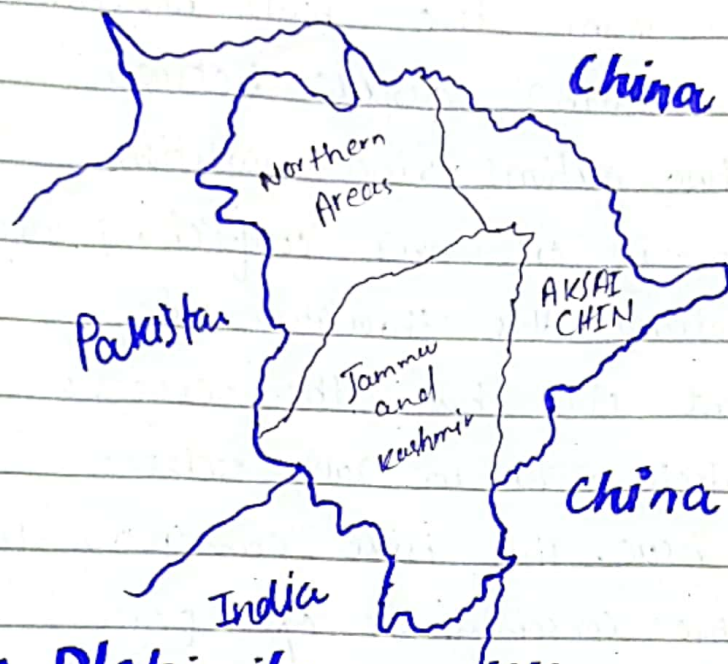 China
Northern
Areas
Pakistan
AKSAI
CHIN
Jammu
and
Kashmir
China
India